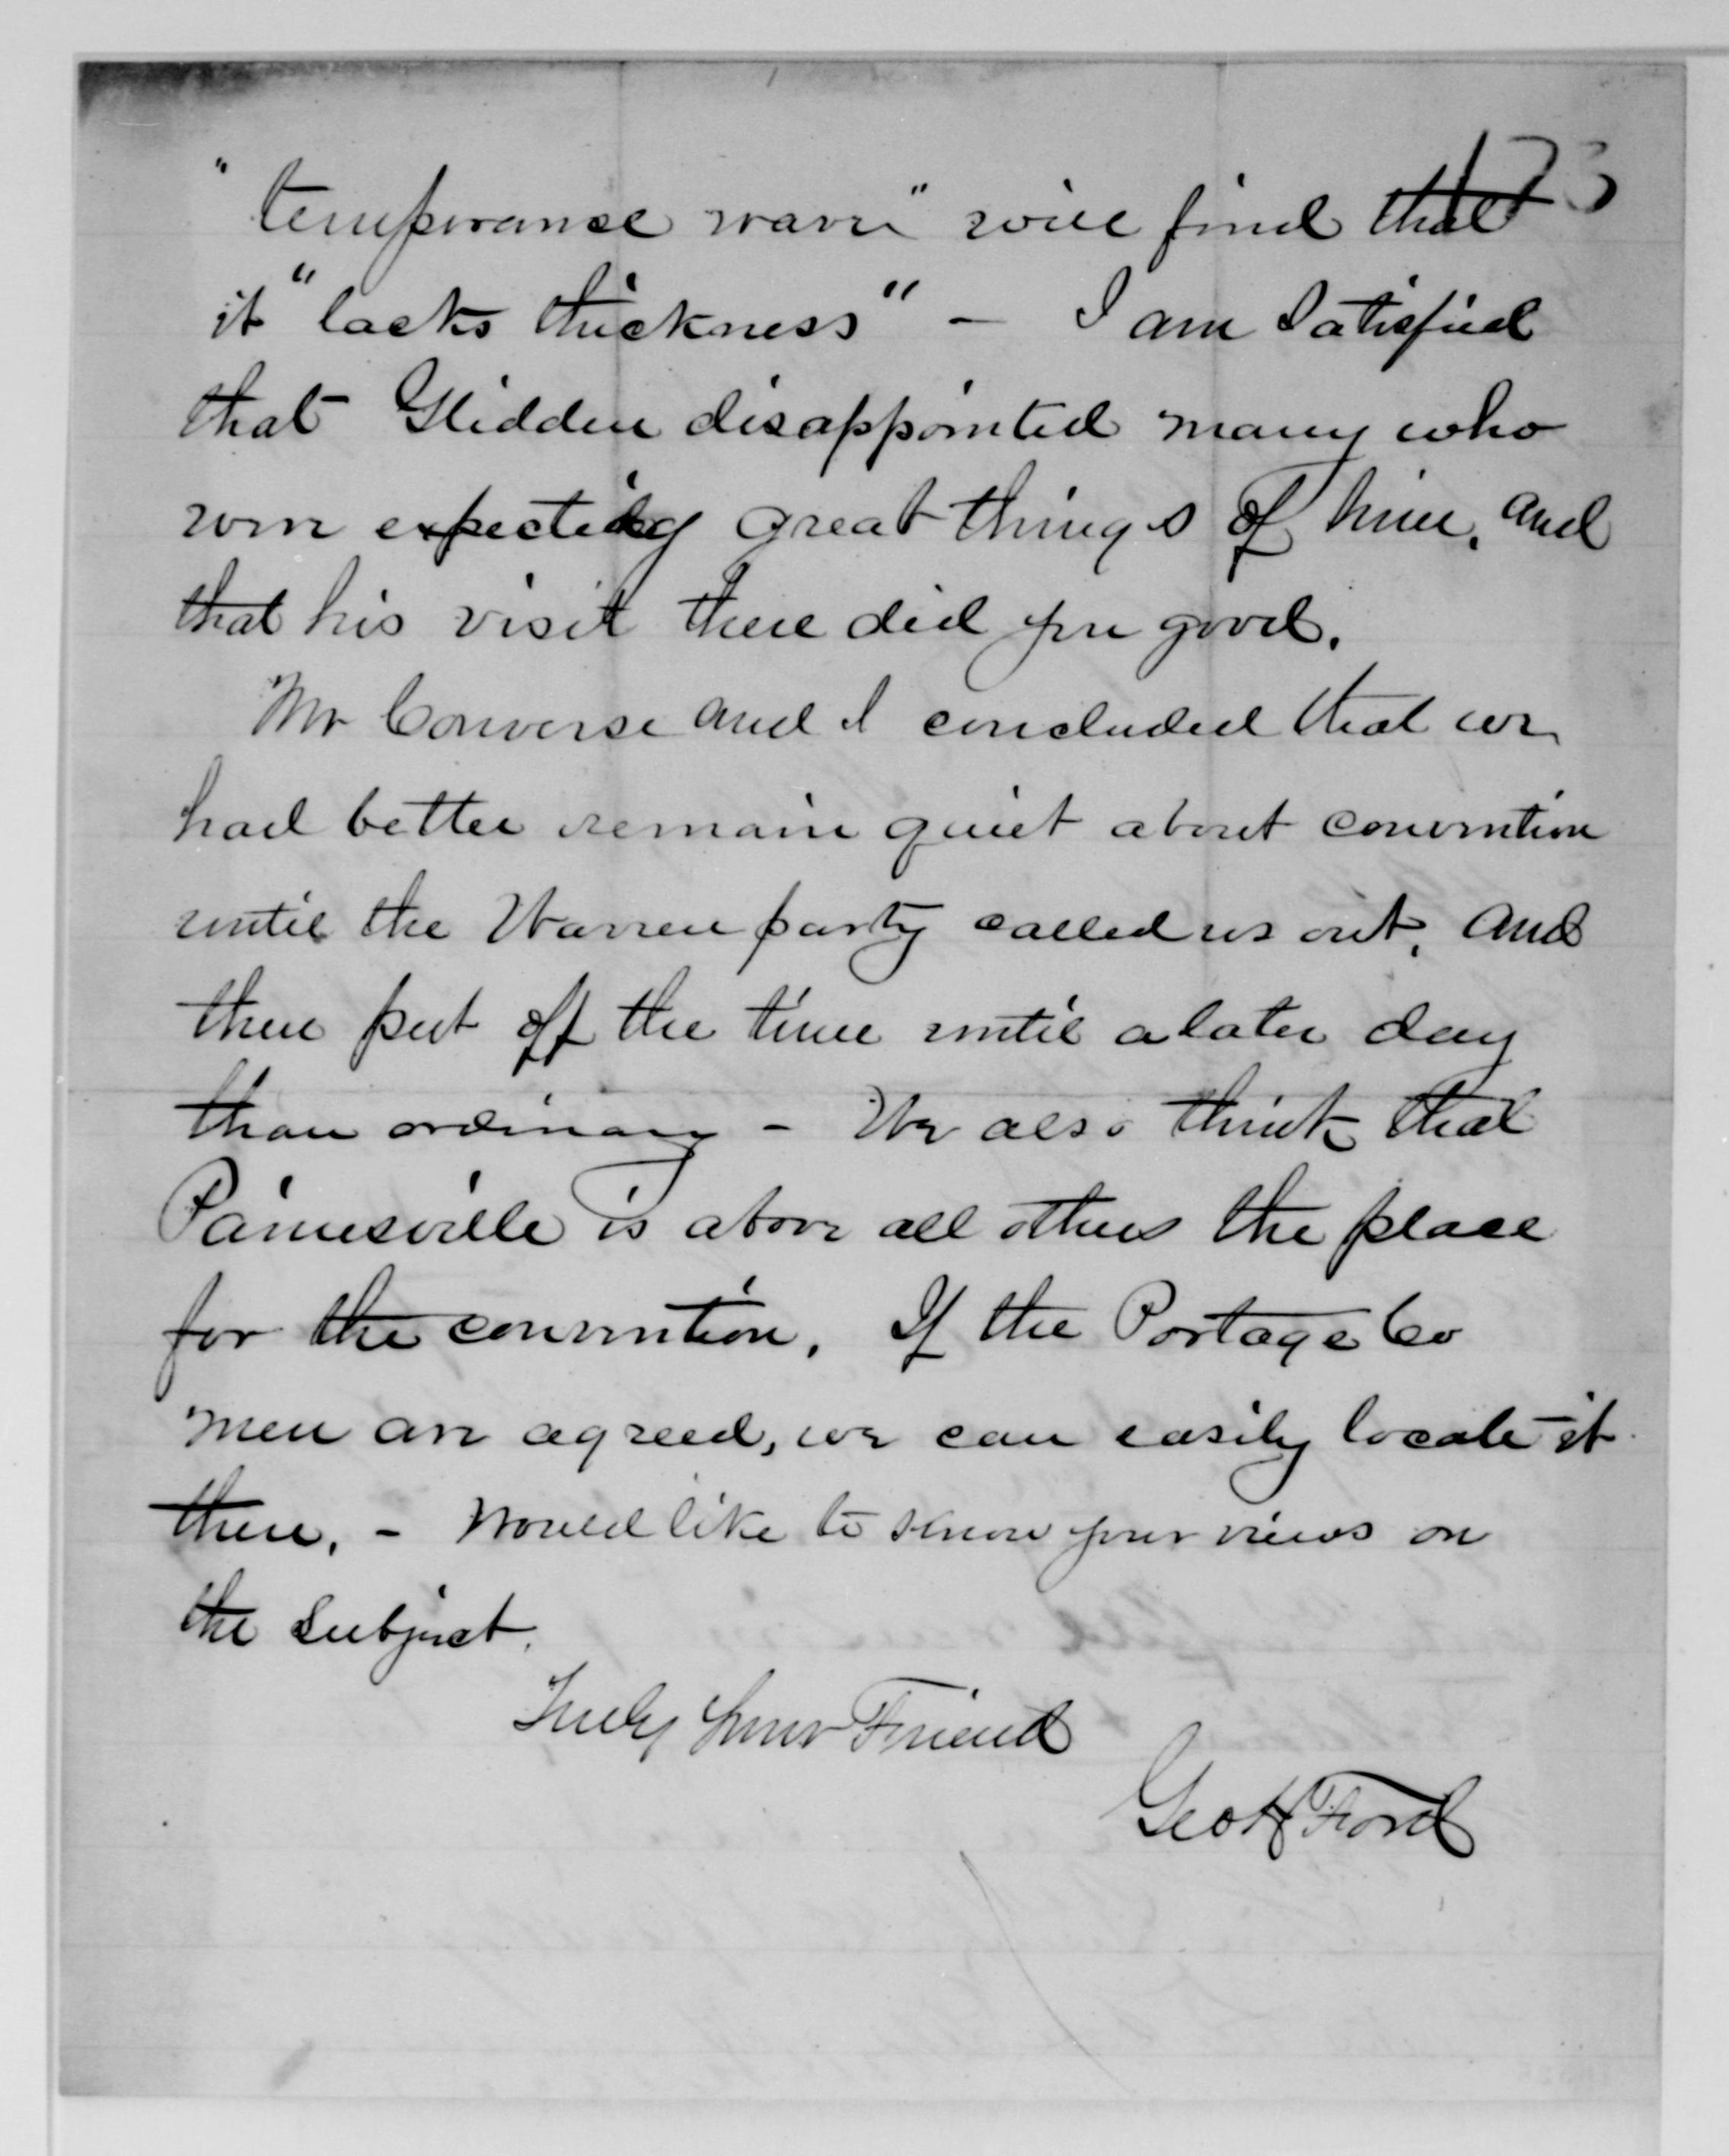 173
"temperance wave" will find that
it "lacks thickness" – I am satisfied
that Glidden disappointed many who
were expecting great things of him, and
that his visit there did you good.
Mr Converse and I concluded that we
had better remain quiet about convention
until the Warren party called us out, and
then put off the time until a later day
than ordinary – We also think that
Painesville is above all others the place
for the convention. If the Portage Co
men are agreed, we can easily locate it
there. – Would like to know your views on
the subject.
Truly Your Friend
Geo H Ford